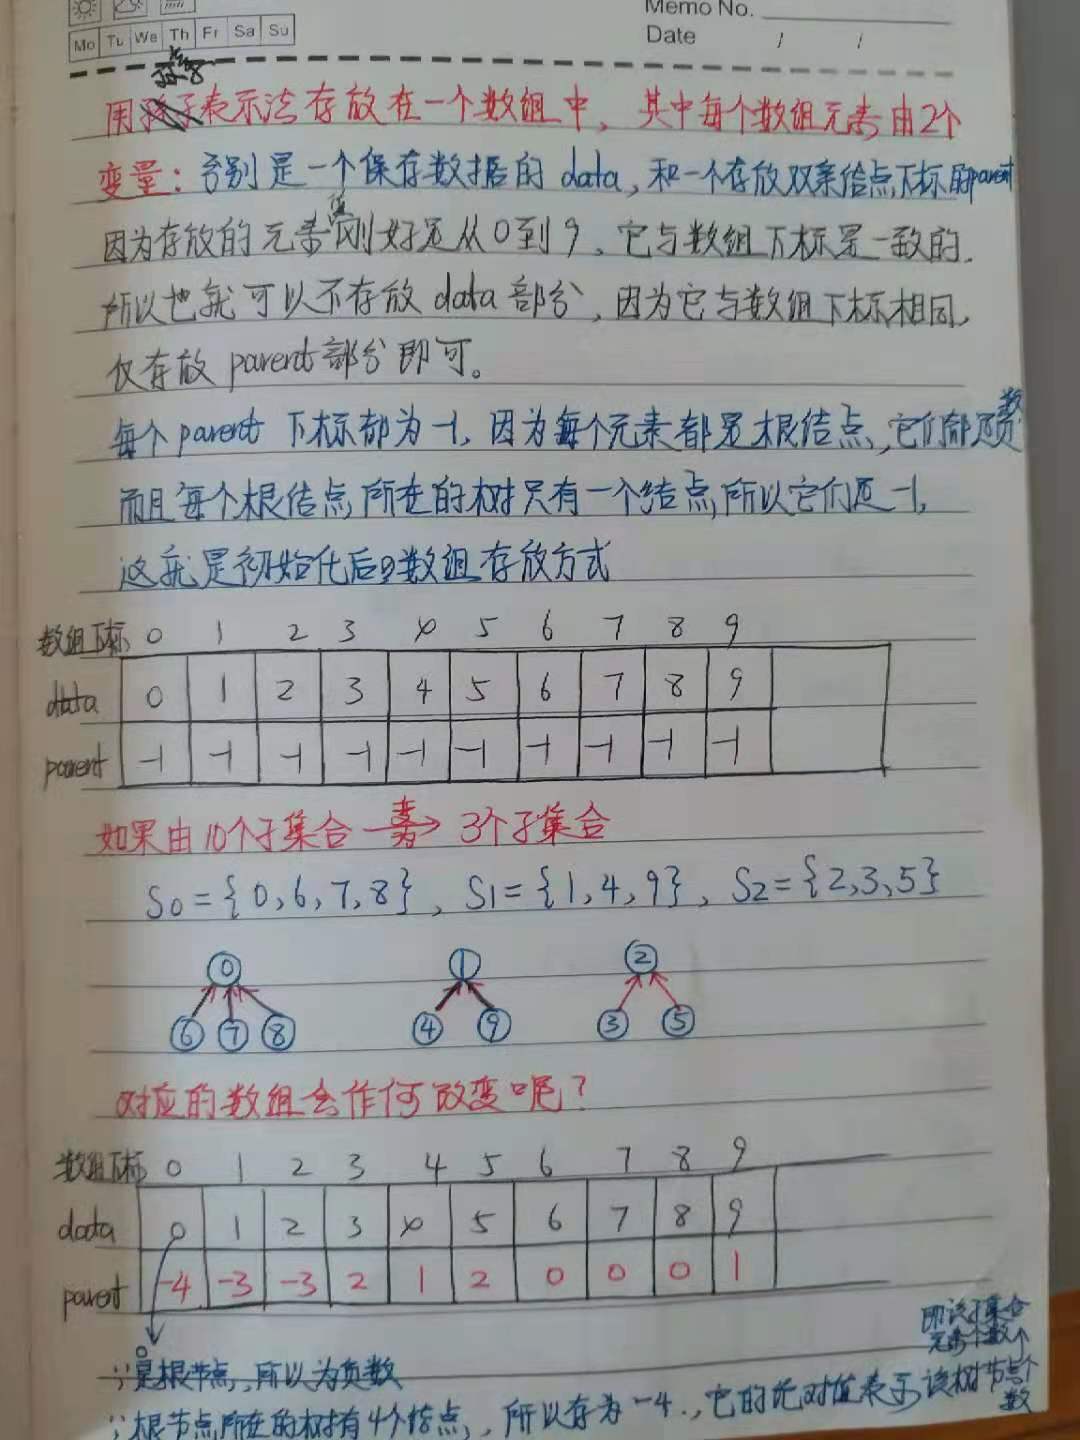 Memo No.
Mo Tu We Th Fr Sa Su
Date / /
双亲
用孩子表示法存放在一个数组中,其中每个数组元素由2个
变量:分别是一个保存数据的data,和一个存放双亲结点下标的parent
因为存放的元素值刚好是从0到9,它与数组下标是一致的.
所以也就可以不存放data部分,因为它与数组下标相同,
仅存放parent部分即可。
每个parent下标都为-1,因为每个元素都是根结点,它们都是负数
而且每个根结点所在的树只有一个结点,所以它们是-1,
这就是初始化后的数组存放方式
数组下标 0 1 2 3 4 5 6 7 8 9
data 0 1 2 3 4 5 6 7 8 9
parent -1 -1 -1 -1 -1 -1 -1 -1 -1 -1
如果由10个子集合 变为→ 3个子集合
S0={0,6,7,8}, S1={1,4,9}, S2={2,3,5}
0 1 2
6 7 8 4 9 3 5
对应的数组会作何改变呢?
数组下标 0 1 2 3 4 5 6 7 8 9
data 0 1 2 3 4 5 6 7 8 9
parent -4 -3 -3 2 1 2 0 0 0 1
即该子集合
元素个数
∵0是根节点,所以为负数
∵根节点所在的树有4个结点,所以存为-4.,它的绝对值表示该树节点个数